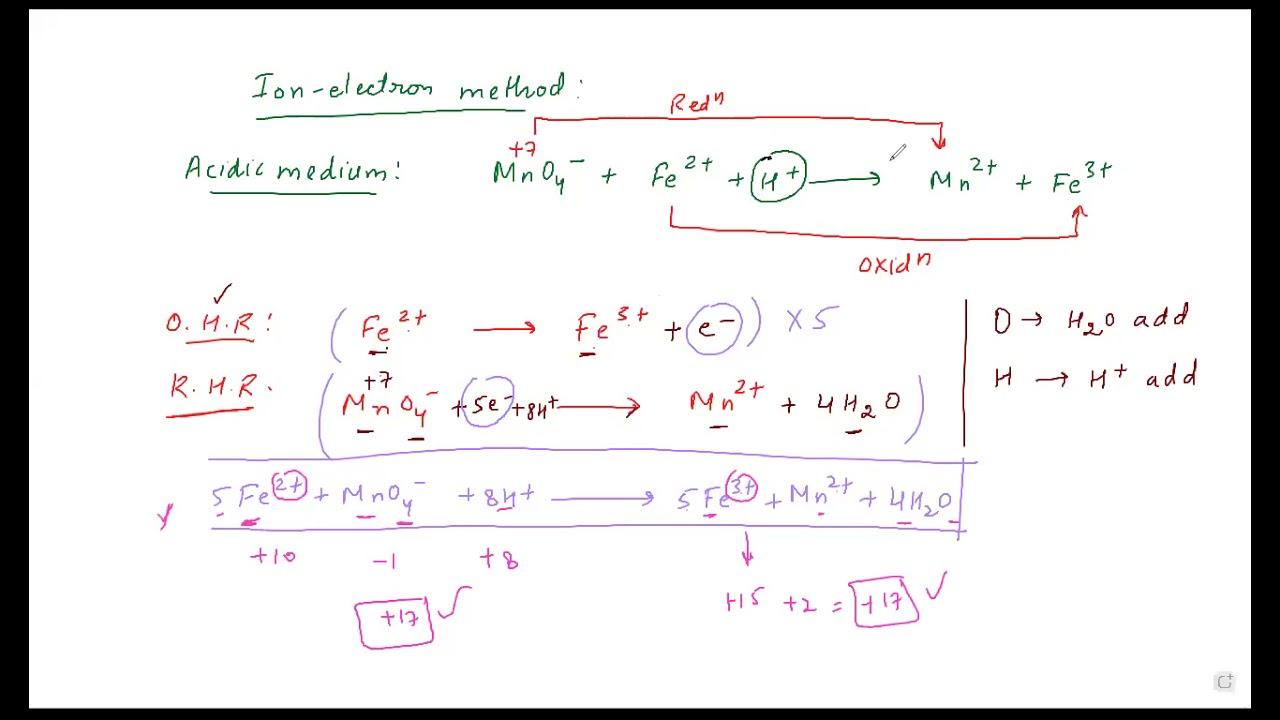 Ion-electron method:
Redⁿ
+7
Acidic medium: MnO₄⁻ + Fe²⁺ + H⁺ ⟶ Mn²⁺ + Fe³⁺
Oxidⁿ
✓
O.H.R: (Fe²⁺ ⟶ Fe³⁺ + e⁻) × 5
O → H₂O add
+7
R.H.R. (MnO₄⁻ + 5e⁻ + 8H⁺ ⟶ Mn²⁺ + 4H₂O)
H → H⁺ add
5Fe²⁺ + MnO₄⁻ + 8H⁺ ⟶ 5Fe³⁺ + Mn²⁺ + 4H₂O
+10 -1 +8
+17 ✓
+15 +2 = +17 ✓